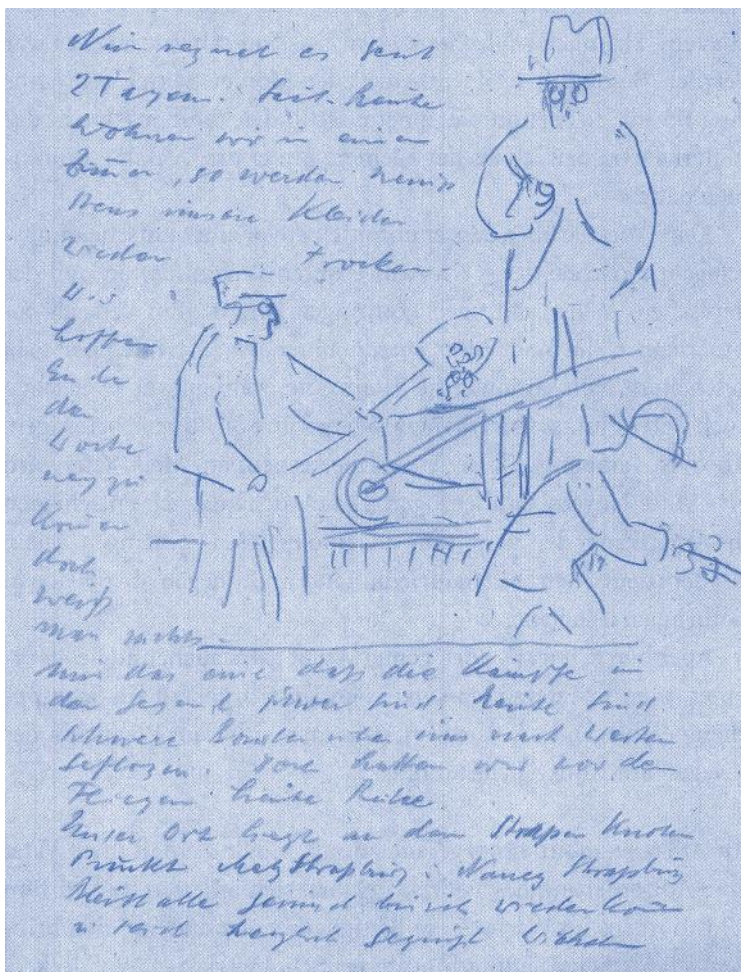 Nun regnet es seit
2 Tagen. Seit heute
wohnen wir in einem
Zimmer, so werden wenigs
tens unsere Kleider
wieder trocken.
Wir
hoffen
Ende
der
Woche
weg zu
können
doch
weiß
man nichts.
nur das eine daß die Kämpfe in
der Gegend schwer sind. Heute sind
schwere Bomber über uns nach Westen
geflogen. Sonst hatten wir vor den
Fliegern heute Ruhe.
Unser Ort liegt an dem Straßen Knoten
Punkt Metz Straßburg: Nancy Straßburg
Bleibt alle gesund bis ich wieder komme
u seid herzlich gegrüßt Wilhelm